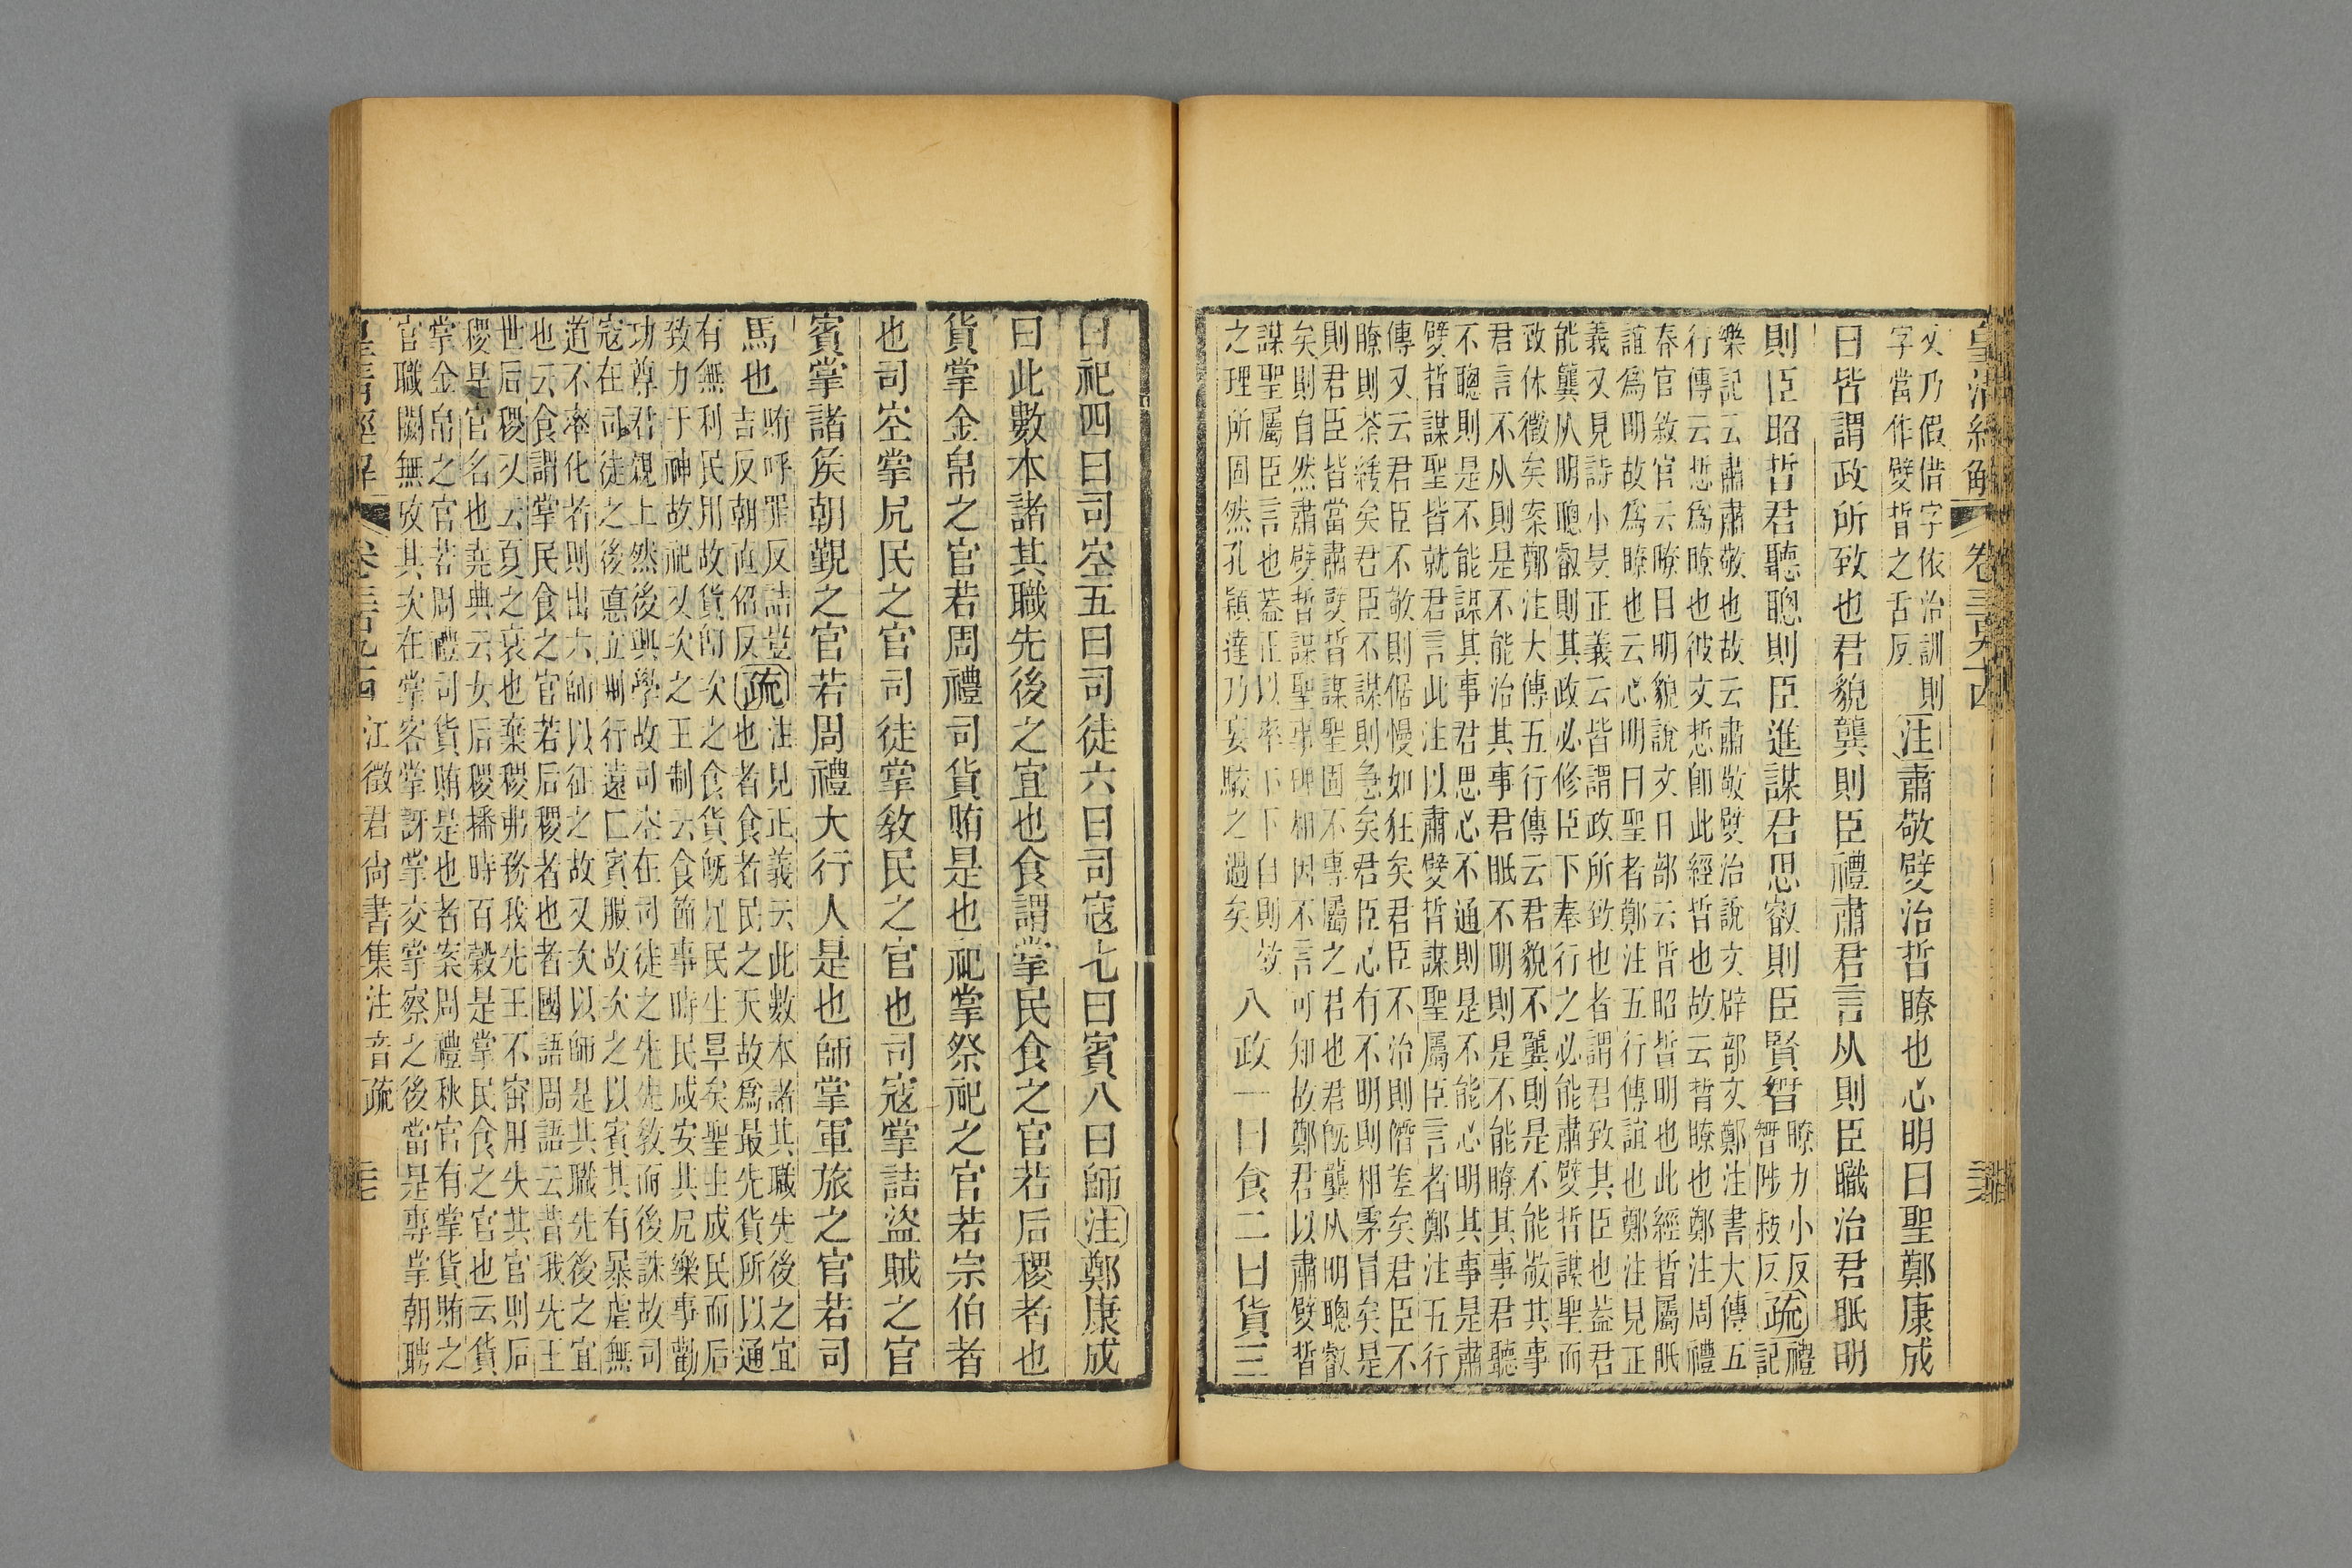 皇清經解 卷三百九十四
乂乃假借字依治訓則
字當作嬖晢之舌反
注肅敬嬖治晢瞭也心明曰聖鄭康成
曰皆謂政所致也君貌龔則臣禮肅君言从則臣職治君眡明
則臣昭晢君聽聰則臣進謀君思叡則臣賢智
瞭力小反
智陟敊反
疏
禮
記
樂記云肅肅敬也故云肅敬嬖治說文辟部文鄭注書大傳五
行傳云悊爲瞭也彼文悊卽此經晢也故云晢瞭也鄭注周禮
春官敘官云瞭目明貌說文日部云晢昭晢明也此經晢屬眡
誼爲明故爲瞭也云心明曰聖者鄭注五行傳誼也鄭注見正
義又見詩小旻正義云皆謂政所致也者謂君致其臣也葢君
能龔从明聰叡則其政必修臣下奉行之必能肅嬖晢謀聖而
致休徵矣案鄭注大傳五行傳云君貌不龔則是不能敬其事
君言不从則是不能治其事君眡不明則是不能瞭其事君聽
不聰則是不能謀其事君思心不通則是不能心明其事是肅
嬖晢謀聖皆就君言此注以肅嬖晢謀聖屬臣言者鄭注五行
傳又云君臣不敬則倨慢如狂矣君臣不治則僭差矣君臣不
瞭則荼緩矣君臣不謀則急矣君臣心有不明則相霿冒矣是
則君臣皆當肅嬖晢謀聖固不專屬之君也君旣龔从明聰叡
矣則自然肅嬖晢謀聖事理相因不言可知故鄭君以肅嬖晢
謀聖屬臣言也葢正以率下下自則效
之理所固然孔穎達乃妄駮之過矣
八政一曰食二曰貨三
曰祀四曰司空五曰司徒六曰司寇七曰賓八曰師注鄭康成
曰此數本諸其職先後之宜也食謂掌民食之官若后稷者也
貨掌金帛之官若周禮司貨賄是也祀掌祭祀之官若宗伯者
也司空掌凥民之官司徒掌敎民之官也司寇掌詰盜賊之官
賓掌諸矦朝覲之官若周禮大行人是也師掌軍旅之官若司
馬也
賄呼罪反詰豈
吉反朝直佋反
疏
注見正義云此數本諸其職先後之宜
也者食者民之天故爲最先貨所以通
有無利民用故貨卽次之食貨旣足民生厚矣聖王成民而后
致力于神故祀又次之王制云食節事時民咸安其凥樂事勸
功尊君親上然後興學故司空在司徒之先先敎而後誅故司
寇在司徒之後悳立刑行遠亡賓服故次之以賓其有暴虐無
道不率化者則出六師以征之故又次以師是其職先後之宜
也云食謂掌民食之官若后稷者也者國語周語云昔我先王
世后稷又云夏之衰也棄稷弗務我先王不窋用失其官則后
稷是官名也堯典云女后稷播時百穀是掌民食之官也云貨
掌金帛之官若周禮司貨賄是也者案周禮秋官有掌貨賄之
官職闕無攷其次在掌客掌訝掌交掌察之後當是專掌朝聘
皇清經解 卷三百九十四 江徵君尙書集注音疏